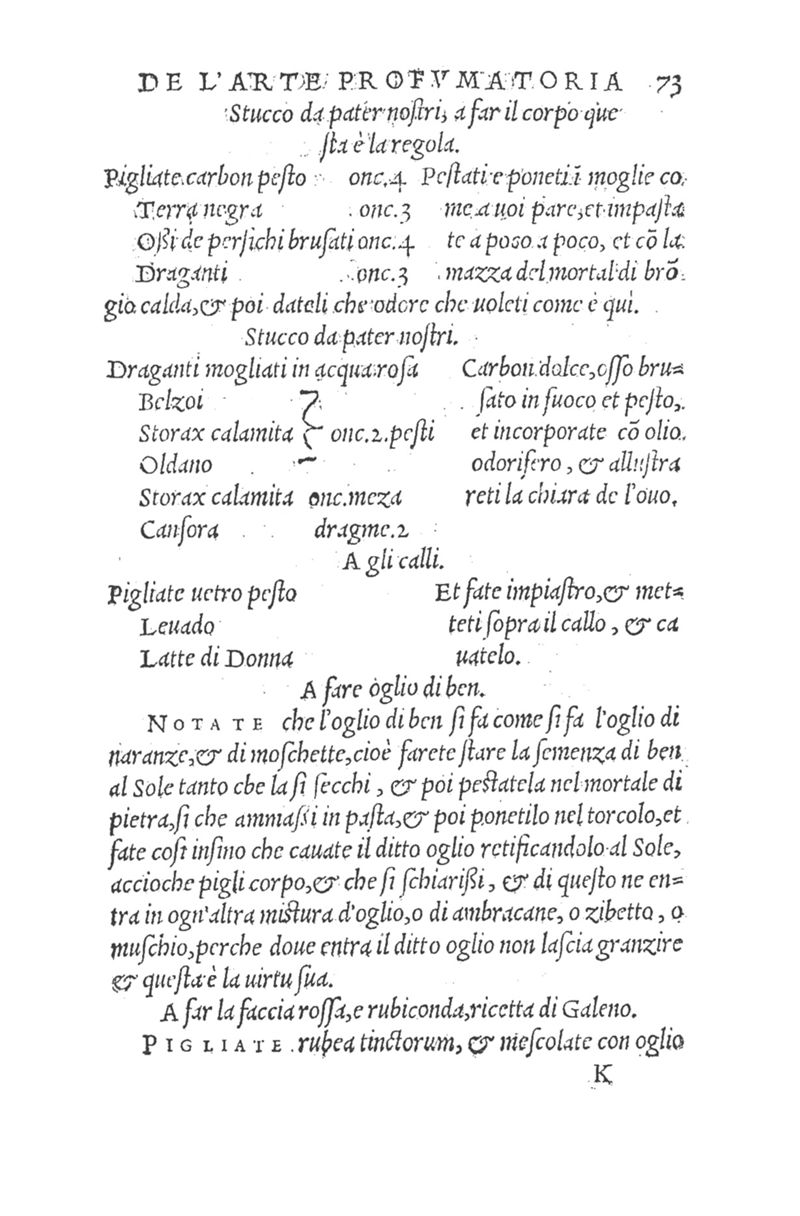 DE L'ARTE PROFVMATORIA 73
Stucco da pater noſtri, a far il corpo que
ſta è la regola.
Pigliate carbon peſto onc.4 Peſtati e poneti ĩ moglie co
Terra negra onc.3 me a uoi pare, et impaſta
Oßi de perſichi bruſati onc.4 te a poco a poco, et cõ la
Draganti onc.3 mazza del mortal di brõ
gio calda, & poi dateli che odore che uoleti come è qui.
Stucco da pater noſtri.
Draganti mogliati in acqua roſa Carbon dolce, oſſo bru=
Belzoi ſato in fuoco et peſto,
Storax calamita onc.2.peſti et incorporate cõ olio
Oldano odorifero, & alluſtra
Storax calamita onc.meza reti la chiara de l'ouo,
Canfora dragme.2
A gli calli.
Pigliate uetro peſto Et fate impiaſtro, & met=
Leuado teti ſopra il callo, & ca
Latte di Donna uatelo.
A fare oglio di ben.
NOTATE che l'oglio di ben ſi fa come ſi fa l'oglio di
naranze, & di moſchette, cioè farete ſtare la ſemenza di ben
al Sole tanto cbe la ſi ſecchi, & poi peſtatela nel mortale di
pietra, ſi che ammaſſi in paſta, & poi ponetilo nel torcolo, et
fate coſi inſino che cauate il ditto oglio retificandolo al Sole,
accioche pigli corpo, & che ſi ſchiarißi, & di queſto ne en=
tra in ogn'altra miſtura d'oglio, o di ambracane, o zibetto, o
muſchio, perche doue entra il ditto oglio non laſcia granzire
& queſta è la uirtu ſua.
A far la faccia roſſa, e rubiconda, ricetta di Galeno.
PIGLIATE rubea tinctorum, & meſcolate con oglio
K